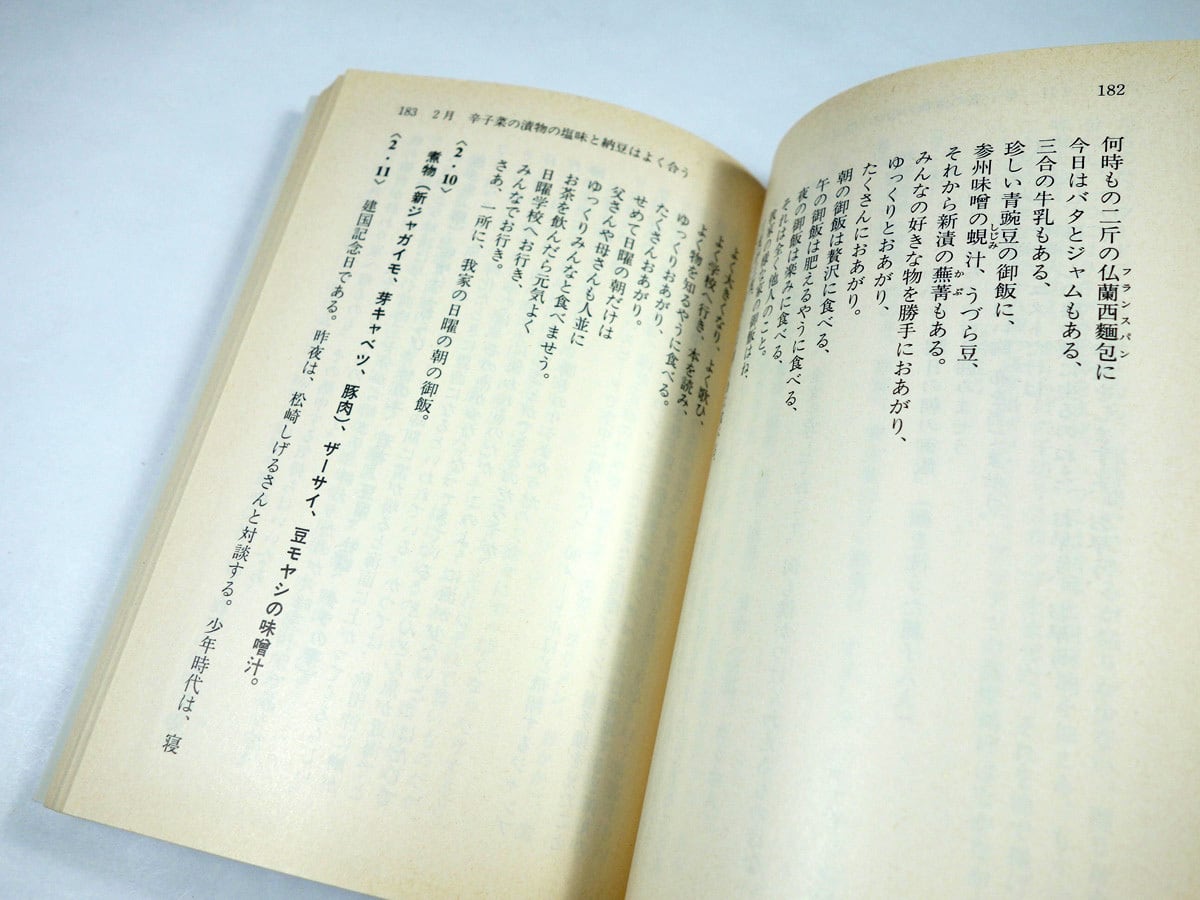 182
何時もの二斤の仏蘭西麵包に
フランスパン
今日はバタとジャムもある、
三合の牛乳もある、
珍しい青豌豆の御飯に、
参州味噌の蜆汁、うづら豆、
しじみ
それから新漬の蕪菁もある。
かぶ
みんなの好きな物を勝手におあがり、
ゆっくりとおあがり、
たくさんにおあがり。
朝の御飯は贅沢に食べる、
午の御飯は肥えるやうに食べる、
夜の御飯は楽みに食べる、
それは全く他人のこと。
我家の様な家の御飯はね、
183 2月 辛子菜の漬物の塩味と納豆はよく合う
よく大きくなり、よく歌ひ、
よく学校へ行き、本を読み、
よく物を知るやうに食べる。
ゆっくりおあがり、
たくさんおあがり。
せめて日曜の朝だけは
父さんや母さんも人並に
ゆっくりみんなと食べませう。
お茶を飲んだら元気よく
日曜学校へお行き、
みんなでお行き。
さあ、一所に、我家の日曜の朝の御飯。
〈2・10〉
煮物（新ジャガイモ、芽キャベツ、豚肉）、ザーサイ、豆モヤシの味噌汁。
〈2・11〉
建国記念日である。昨夜は、松崎しげるさんと対談する。少年時代は、寝